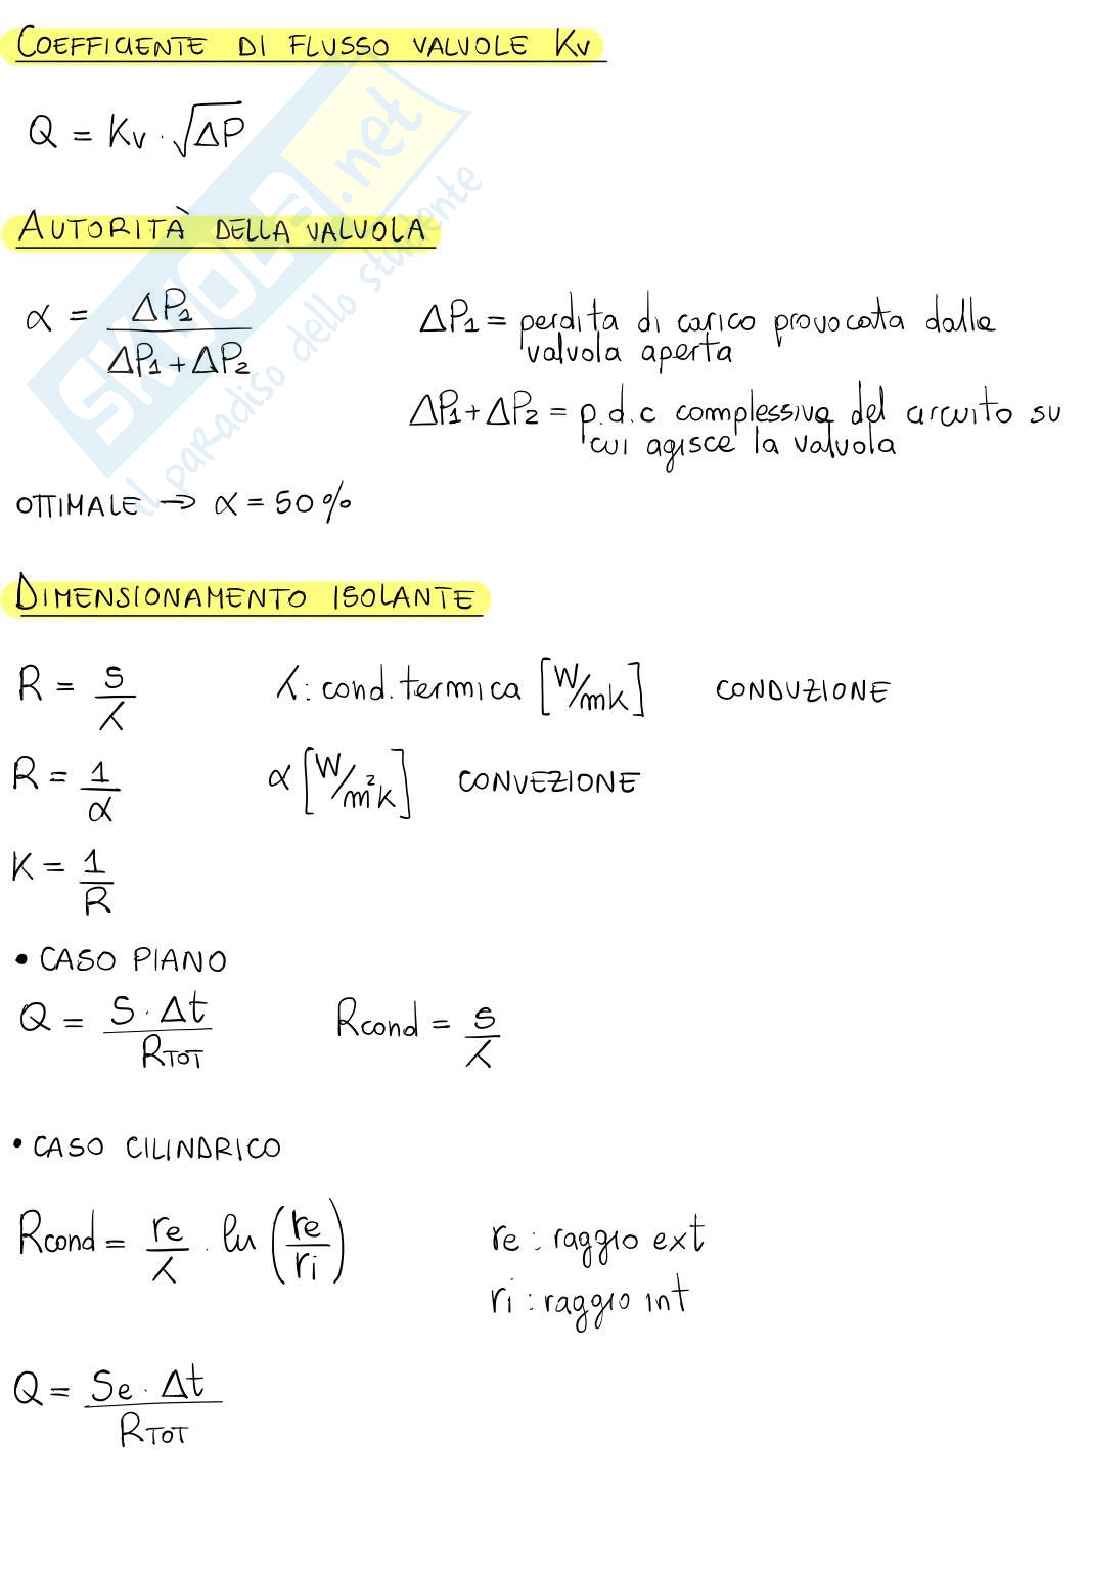 COEFFICIENTE DI FLUSSO VALVOLE Kv
Q = Kv · √ΔP
AUTORITÀ DELLA VALVOLA
α = ΔP1 / (ΔP1 + ΔP2)
ΔP1 = perdita di carico provocata dalla
valvola aperta
ΔP1 + ΔP2 = p.d.c complessiva del circuito su
cui agisce la valvola
OTTIMALE → α = 50%
DIMENSIONAMENTO ISOLANTE
R = s / λ λ: cond. termica [W/mk] CONDUZIONE
R = 1 / α α [W/m²k] CONVEZIONE
K = 1 / R
• CASO PIANO
Q = S · Δt / RTOT Rcond = s / λ
• CASO CILINDRICO
Rcond = re / λ · ln (re / ri)
re : raggio ext
ri : raggio int
Q = Se · Δt / RTOT
SKUOLA.net
il paradiso dello studente